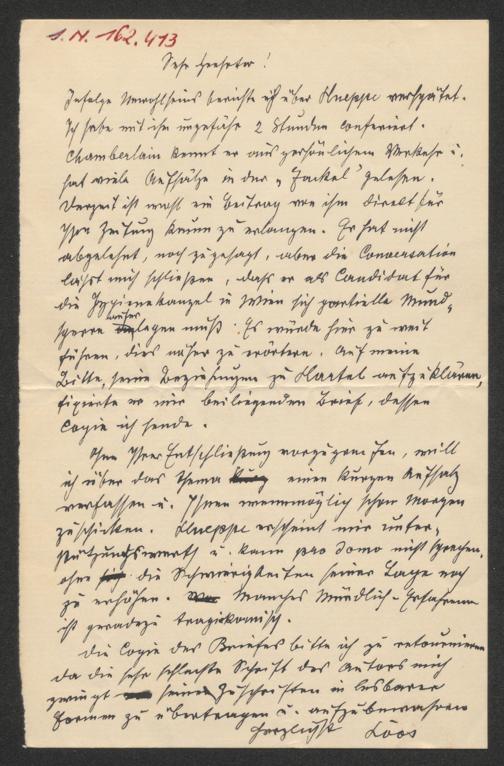 I.N. 162.413
Sehr Geehrter!
Infolge Unwohlseins berichte ich über Hueppe verspätet.
Ich habe mit ihm ungefähr 2 Stunden conferiert.
Chamberlain kennt er aus persönlichem Verkehr u.
hat viele Aufsätze in der „Fackel" gelesen.
Derzeit ist wohl ein Beitrag von ihm direkt für
Ihre Zeitung kaum zu erlangen. Er hat nicht
abgelehnt, noch zugesagt, aber die Conversation
lässt mich schließen, dass er als Candidat für
die Hygienekanzel in Wien sich partielle Mund-
sperre auferlegen muß. Es würde hier zu weit
führen, dies näher zu erörtern. Auf meine
Bitte, seine Beziehungen zu Hartel aufzuklären,
fixierte er mir beiliegenden Brief, dessen
Copie ich sende.
Ohne Ihrer Entschließung vorzugreifen, will
ich über das Thema einen kurzen Aufsatz
verfassen u. Ihnen womöglich schon morgen
zuschicken. Hueppe erscheint mir unter-
stützungswerth u. kann pro domo nicht sprechen,
ohne die Schwierigkeiten seiner Lage noch
zu erhöhen. Manches Mündlich-Erfahrene
ist geradezu tragikomisch.
Die Copie des Briefes bitte ich zu retournieren
da die sehr schlechte Schrift des Autors mich
zwingt seine Zuschriften in lesbarer
Formen zu übertragen u. aufzubewahren
Herzlichst Loos